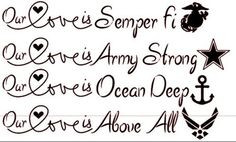 Our Love is Semper Fi
Our Love is Army Strong
Our Love is Ocean Deep
Our Love is Above All